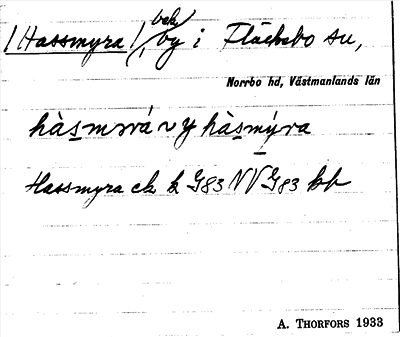 (Hassmyra), bek. by i Fläckebo sn,
Norrbo hd, Västmanlands län
hàsmrrá ~ y hàsmýra
Hassmyra ek k G83 NV G83 bp
A. THORFORS 1933